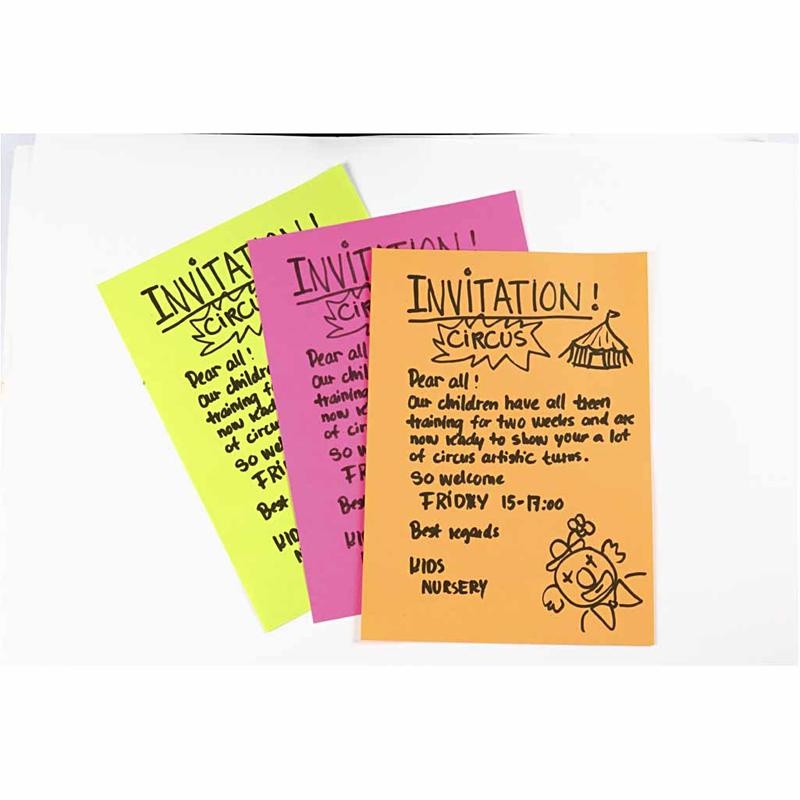 INVITATION!
CIRCUS
Dear all!
Our child
training fo
now re
of circu
So wel
FRI
Best
KID
N
INVITATION!
CIR
Dear all
Our chil
training
now re
of cir
So w
FR
Best
KI
INVITATION!
CIRCUS
Dear all!
Our children have all been
training for two weeks and are
now ready to show your a lot
of circus artistic turns.
So welcome
FRIDAY 15-17:00
Best regards
KIDS
NURSERY